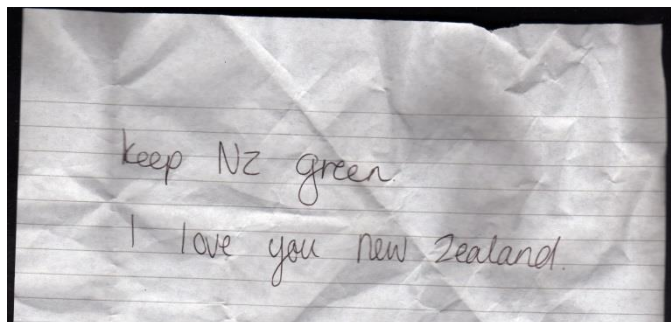 keep NZ green.
I love you new zealand.